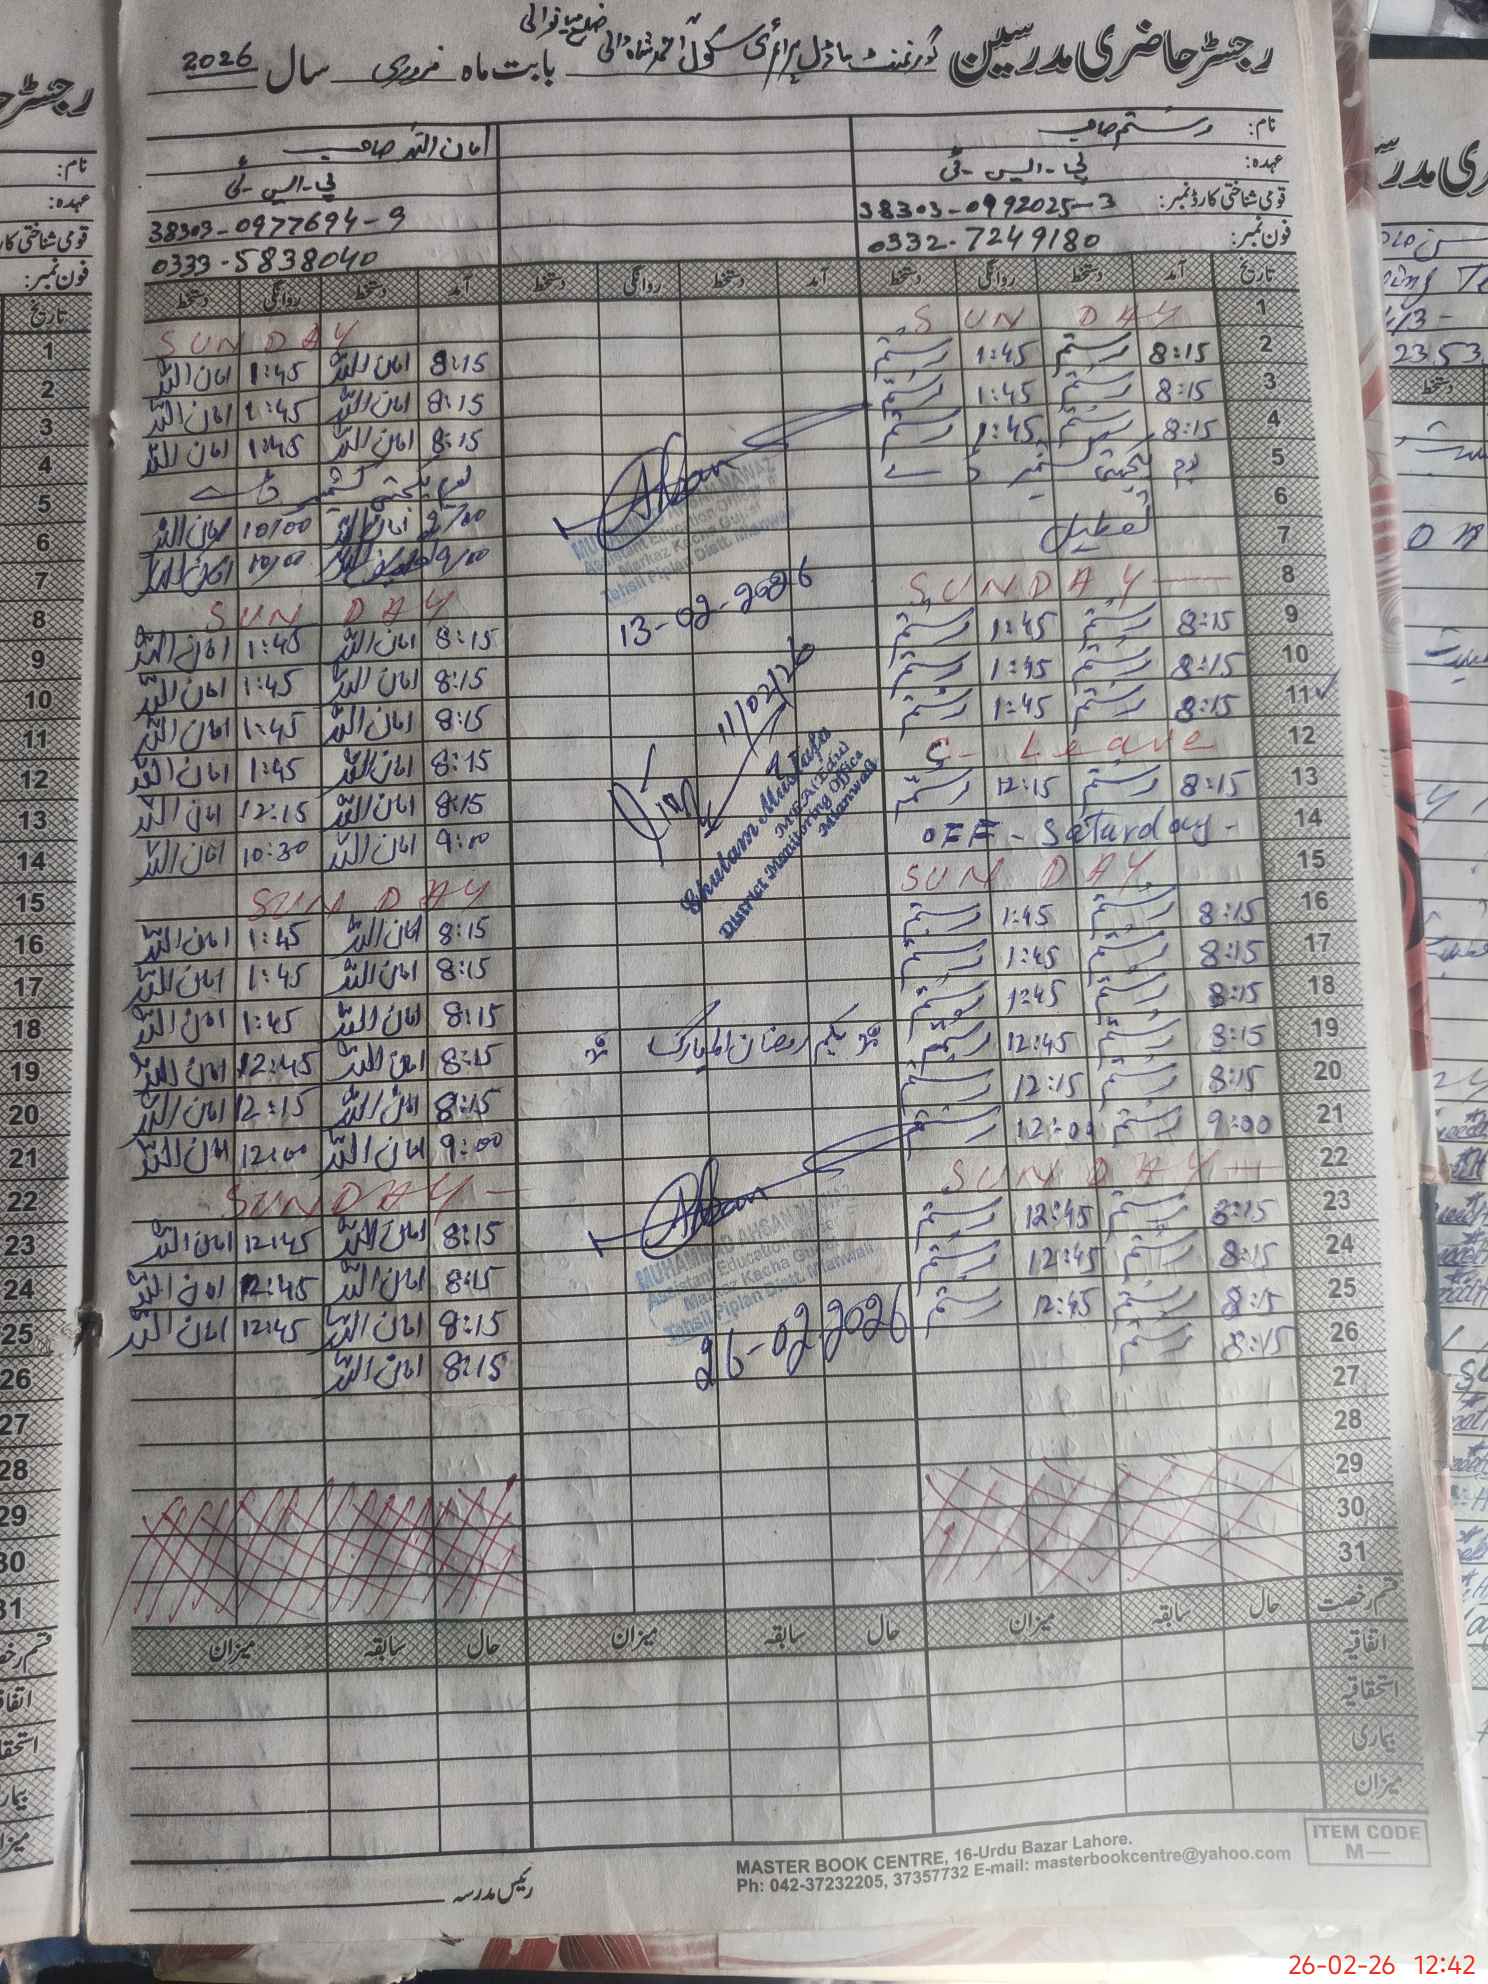 رجسٹر حاضری مدرسین گورنمنٹ ماڈل پرائمری سکول احمد شاہ والی ضلع میانوالی بابت ماہ فروری سال 2026
نام: رستم صاحب
امان اللہ صاحب
عہدہ: پی-ایس-ٹی
پی-ایس-ٹی
قومی شناختی کارڈ نمبر: 38303-0992025-3
38303-0977694-9
فون نمبر: 0332-7249180
0333-5838040
تاریخ آمد دستخط روانگی دستخط آمد دستخط روانگی دستخط آمد دستخط روانگی دستخط
1 SUN DAY SUN DAY
2 8:15 رستم 1:45 رستم 8:15 امان اللہ 1:45 امان اللہ
3 8:15 رستم 1:45 رستم 8:15 امان اللہ 1:45 امان اللہ
4 8:15 رستم 1:45 رستم 8:15 امان اللہ 1:45 امان اللہ
5 یوم یکجہتی کشمیر ڈے یوم یکجہتی کشمیر ڈے
6 9/00 امان اللہ 10/00 امان اللہ
7 تعطیل 9/00 10/00 امان اللہ
8 SUNDAY SUN DAY
9 8:15 رستم 1:45 رستم 8:15 امان اللہ 1:45 امان اللہ
10 8:15 رستم 1:45 رستم 8:15 امان اللہ 1:45 امان اللہ
11 8:15 رستم 1:45 رستم 8:15 امان اللہ 1:45 امان اللہ
12 C- Leave 8:15 امان اللہ 1:45 امان اللہ
13 8:15 رستم 12:15 رستم 8:15 امان اللہ 12:15 امان اللہ
14 OFF - Saturday - 9:00 امان اللہ 10:30 امان اللہ
15 SUN DAY SUN DAY
16 8:15 رستم 1:45 رستم 8:15 امان اللہ 1:45 امان اللہ
17 8:15 رستم 1:45 رستم 8:15 امان اللہ 1:45 امان اللہ
18 8:15 رستم 1:45 رستم 8:15 امان اللہ 1:45 امان اللہ
19 8:15 رستم 12:45 رستم یکم رمضان المبارک 8:15 امان اللہ 12:45 امان اللہ
20 8:15 رستم 12:15 رستم 8:15 امان اللہ 12:15 امان اللہ
21 9:00 رستم 12:00 رستم 9:00 امان اللہ 12:00 امان اللہ
22 SUN DAY SUNDAY
23 8:15 رستم 12:45 رستم 8:15 امان اللہ 12:45 امان اللہ
24 8:15 رستم 12:45 رستم 8:15 امان اللہ 12:45 امان اللہ
25 8:15 رستم 12:45 رستم 8:15 امان اللہ 12:45 امان اللہ
26 8:15 رستم 8:15 امان اللہ
27
28
29
30
31
Ahsan
MUHAMMAD AHSAN NAWAZ
Assistant Education Officer
Markaz Kacha Gujrat
Tehsil Piplan Distt. Mianwali
13-02-2026
11/02/26
Ghulam Mustafa
MEA (Edu)
District Monitoring Office
Mianwali
Ahsan
MUHAMMAD AHSAN NAWAZ
Assistant Education Officer
Markaz Kacha Gujrat
Tehsil Piplan Distt. Mianwali
26-02-2026
قسم رخصت حال سابقہ میزان حال سابقہ میزان حال سابقہ میزان
اتفاقیہ
استحقاقیہ
بیماری
میزان
رئیس مدرسہ
MASTER BOOK CENTRE, 16-Urdu Bazar Lahore.
Ph: 042-37232205, 37357732 E-mail: masterbookcentre@yahoo.com
ITEM CODE
M—
26-02-26 12:42